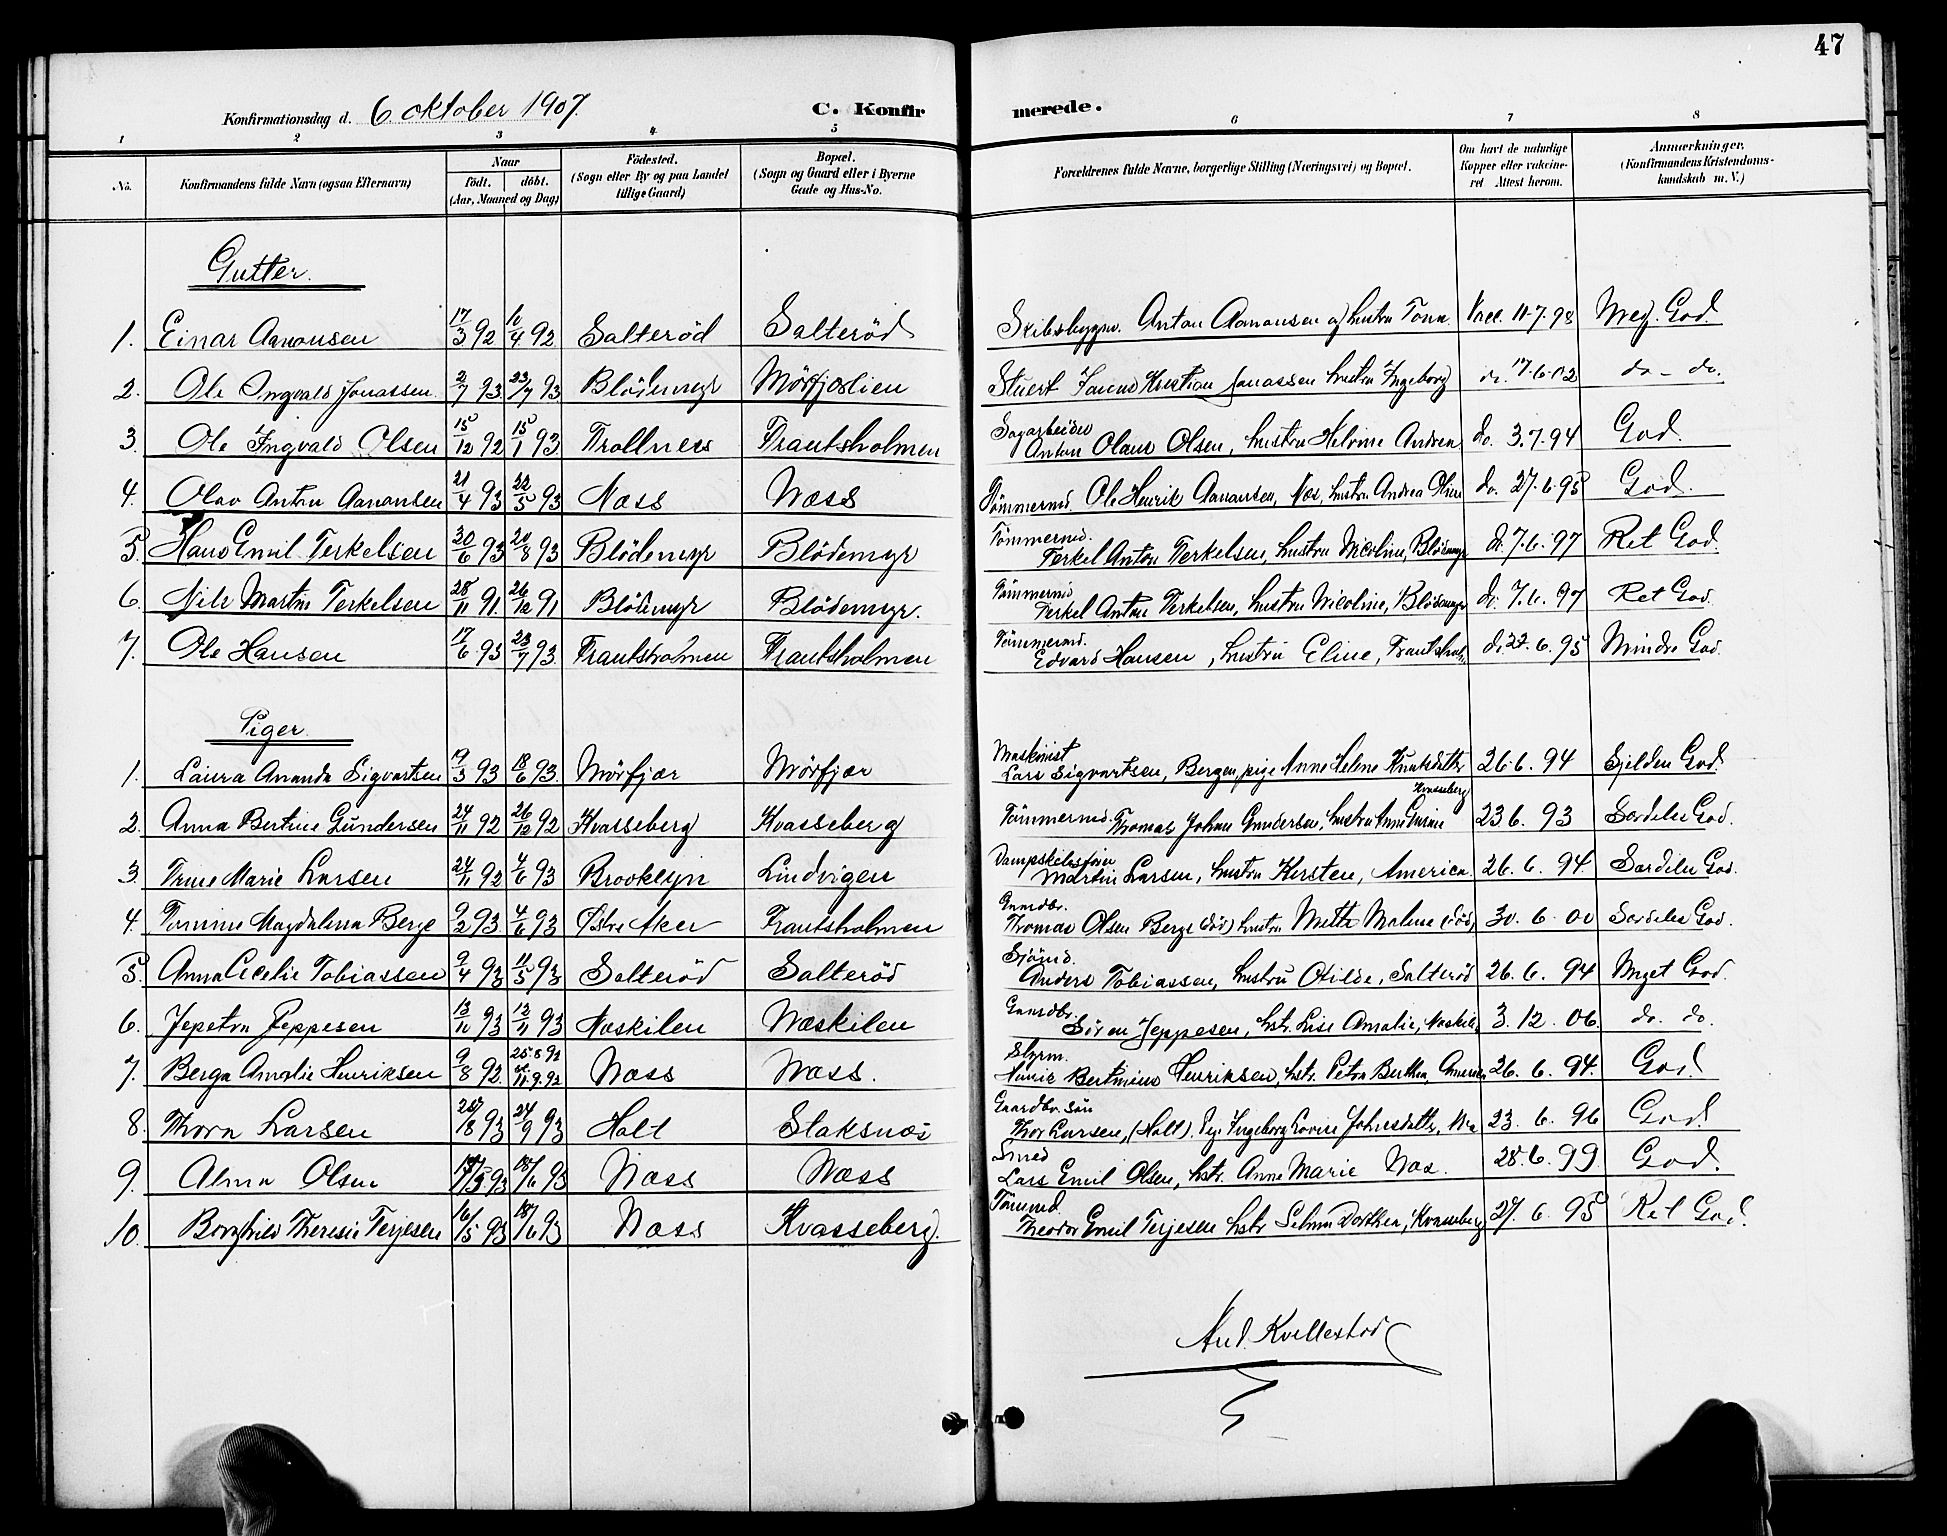 47
Konfirmationsdag d. 6 oktober 1907. C. Konfirmerede.
1 2 3 4 5 6 7 8
No. Konfirmandens fulde Navn (ogsaa Efternavn) Naar født. døbt. (Aar, Maaned og Dag) Fødested. (Sogn eller By og paa Landet tillige Gaard) Bopæl. (Sogn og Gaard eller i Byerne Gade og Hus-No. Forældrenes fulde Navne, borgerlige Stilling (Næringsvei) og Bopæl. Om havt de naturlige Kopper eller vakcineret Attest herom. Anmærkninger, (Konfirmandens Kristendomskundskab m. V.)
Gutter.
1. Einar Aanonsen 17/3 92 10/4 92 Salterød Salterød Skibsbygm. Anton Aanonsen og hustru Tona Vacc. 11-7-98 Meg. God.
2. Ole Ingvald Jonassen 2/7 93 23/7 93 Blødemyr Mørfjærlien Stuert Kristian Jonassen hustru Ingeborg do. 17-6-02 do - do.
3. Ole Ingvald Olsen 15/12 92 15/1 93 Trollness Frantsholmen Sagarbeider Anton Olaus Olsen, hustru Helvine Andrea do. 3.7.94 God.
4. Olav Anton Aanonsen 21/4 93 22/5 93 Næss Næss Tømmermd. Ole Henrik Aanonsen, Næs, hustru Andrea Oline do. 27.6.95 God.
5. Hans Emil Terkelsen 30/6 93 20/8 93 Blødemyr Blødemyr Tømmermd. Terkel Anton Terkelsen, hustru Nicoline, Blødemyr do. 7.6.97 Ret God.
6. Nils Martin Terkelsen 28/11 91 26/12 91 Blødemyr Blødemyr. Tømmermd Terkel Anton Terkelsen, hustru Nicoline, Blødemyr do. 7.6.97 Ret God.
7. Ole Hansen 17/6 93 23/7 93 Frantsholmen Frantsholmen Tømmermd. Edvard Hansen, hustru Eline, Frantsholm. do. 22.6.95 Mindre God.
Piger.
1. Laura Amanda Sigvartsen 19/3 93 18/6 93 Mørfjær Mørfjær Maskinist Lars Sigvartsen, Bergen, pige Anne Helene Knutsdatter 26.6.94 Sjelden God.
2. Anna Bertine Gundersen 24/11 92 26/12 92 Kvasseberg Kvasseberg Tømmermd. Thomas Johan Gundersen, hustru Anne Gurine Kvasseberg 23 6. 93 Særdeles God.
3. Trine Marie Larsen 24/11 92 4/6 93 Brooklyn Lindvigen Dampskibsfører Martin Larsen, hustru Kirsten, America. 26.6.94 Særdeles God.
4. Tomine Magdalena Berge 9/2 93 4/6 93 Østre Aker Frantsholmen Gaardbr. Thomas Olsen Berge (død) hustru Mette Malene (død) 30.6.00 Særdeles God.
5. Anna Cecelie Tobiassen 9/4 93 11/5 93 Salterød Salterød Sjømd. Anders Tobiassen, hustru Otilde, Salterød 26.6.94 Meget God.
6. Jepetra Jeppesen 13/10 93 12/11 93 Næskilen Næskilen Gaardbr. Søren Jeppesen, hstr. Lise Amalie, Næskilen 3.12.06. do. do.
7. Berga Amalie Henriksen 9/8 92. 25.8.92 11.9.92 Næss Næss. Styrm. Bertinius Henriksen, hstr. Petra Berthea, America 26.6.94. God.
8. Thora Larsen 28/8 93 24/9 93 Holt Staksnæs Gaardbr. Søn Thor Larsen, (Holt). Pige Ingeborg Lovise Johnsdatter, 23.6.96 God
9. Alma Olsen /5 93 18/6 93 Næss Næss Smed Lars Emil Olsen, hstr. Anne Marie Næs. 28.6.99. God.
10. Borghild Theresie Terjesen 16/5 93 18/6 93 Næss Kvasseberg. Tømmd. Theodor Emil Terjesen hstr Selma Dorthea, Kvasseberg 27.6.95 Ret God.
And. Kvellestad